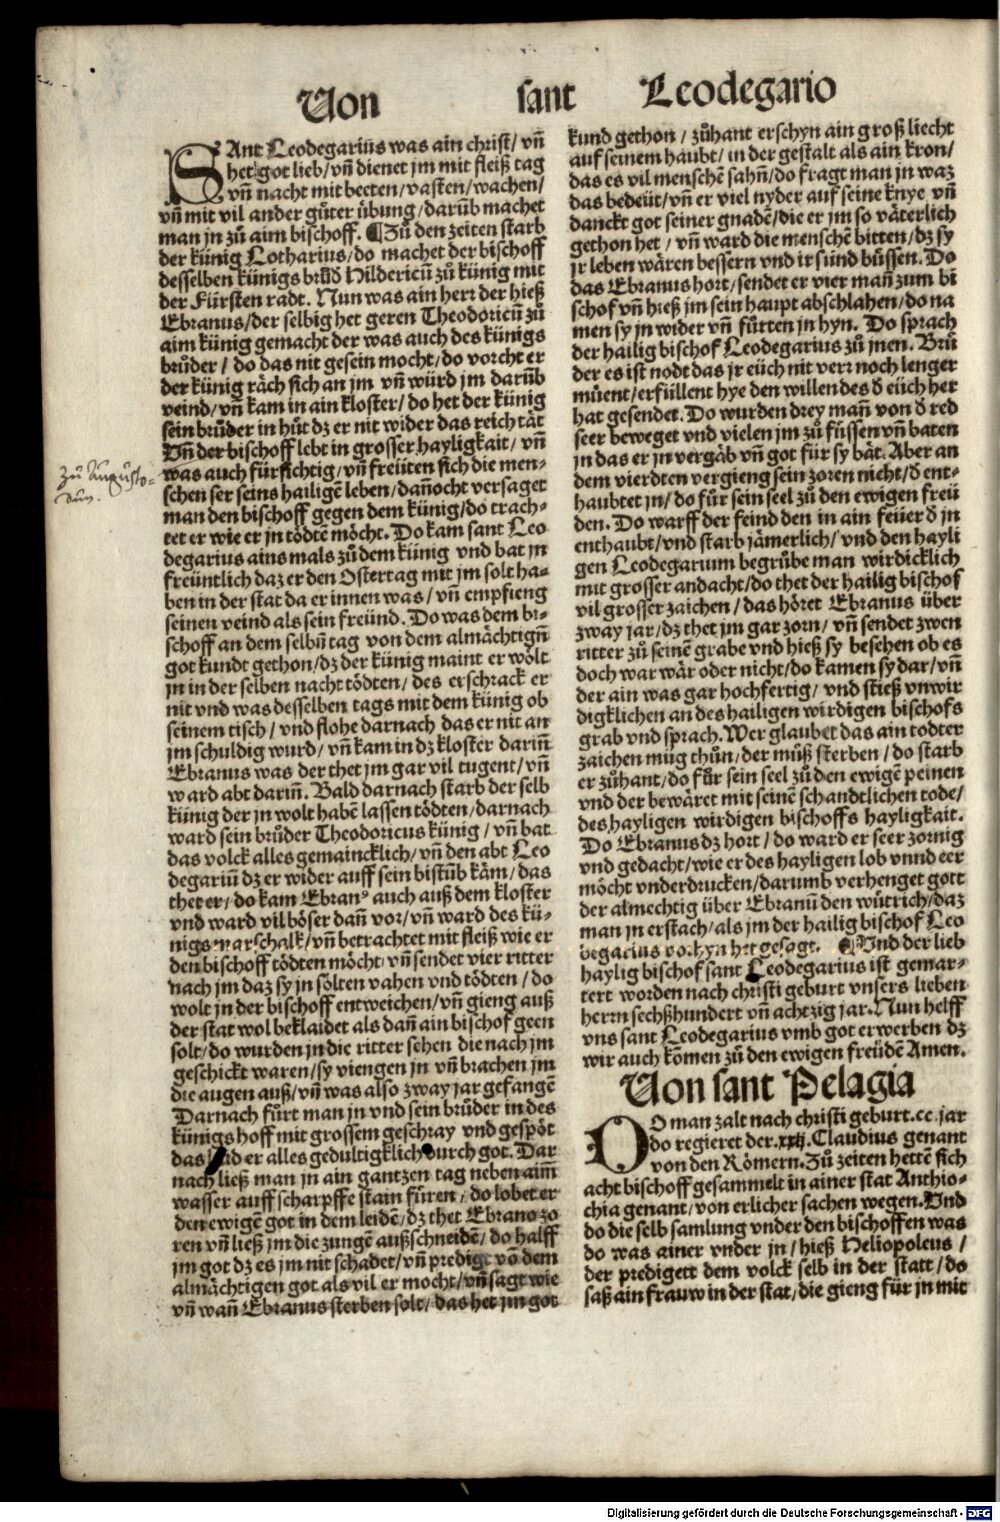 Von sant Leodegario
SAnt Leodegarius was ain christ/ vñ
het got lieb/ vñ dienet jm mit fleiß tag
vñ nacht mit beeten/ vasten/ wachen/
vñ mit vil ander gůter übung/ darūb machet
man jn zů aim bischoff. ¶ Zů den zeiten starb
der künig Lotharius/ do machet der bischoff
desselben künigs brůd̄ Hildericū zů künig mit
der Fürsten radt. Nun was ain herr der hieß
Ebranus/ der selbig het geren Theodoricū zů
aim künig gemacht der was auch des künigs
brůder/ do das nit gesein mocht/ do vorcht er
der künig räch sich an jm vñ würd jm darūb
veind/ vñ kam in ain kloster/ do het der künig
sein brůder in hůt dz er nit wider das reich tät
Vñ der bischoff lebt in grosser hayligkait/ vñ
was auch fürsichtig/ vñ freüten sich die men-
schen ser seins hailigē leben/ dañocht versaget
man den bischoff gegen dem künig/ do trach-
tet er wie er jn tödtē möcht. Do kam sant Leo
degarius ains mals zů dem künig vnd bat jn
freüntlich daz er den Ostertag mit jm solt ha-
ben in der stat da er innen was/ vñ empfieng
seinen veind als sein freünd. Do was dem bi-
schoff an dem selbñ tag von dem almächtigñ
got kundt gethon/ dz der künig maint er wölt
jn in der selben nacht tödten/ des erschrack er
nit vnd was desselben tags mit dem künig ob
seinem tisch/ vnd flohe darnach das er nit an
jm schuldig wurd/ vñ kam in dz kloster dariñ
Ebranus was der thet jm gar vil tugent/ vñ
ward abt dariñ. Bald darnach starb der selb
künig der jn wolt habē lassen tödten/ darnach
ward sein brůder Theodoricus künig/ vñ bat
das volck alles gemaincklich/ vñ den abt Leo
degariū dz er wider auff sein bistūb käm/ das
thet er/ do kam Ebran⁹ auch auß dem kloster
vnd ward vil böser dañ vor/ vñ ward des kü-
nigs marschalk/ vñ betrachtet mit fleiß wie er
den bischoff tödten möcht/ vñ sendet vier ritter
nach jm daz sy jn solten vahen vnd tödten/ do
wolt jn der bischoff entweichen/ vñ gieng auß
der stat wol beklaidet als dañ ain bischof geen
solt/ do wurden jn die ritter sehen die nach jm
geschickt waren/ sy viengen jn vñ brachen jm
die augen auß/ vñ was also zway jar gefangē
Darnach fůrt man jn vnd sein brůder in des
künigs hoff mit grossem geschray vnd gespöt
das laid er alles gedultigklich durch got. Dar
nach ließ man jn ain gantzen tag neben aim̄
wasser auff scharpffe stain fůren/ do lobet er
den ewigē got in dem leidē/ dz thet Ebrano zo
ren vñ ließ jm die zungē außschneidē/ do halff
jm got dz es jm nit schadet/ vñ prediget vō dem
almächtigen got als vil er mocht/ vñ sagt wie
vñ wañ Ebranus sterben solt/ das het jm got
zů Augusto-
dun.
kund gethon/ zůhant erschyn ain groß liecht
auf seinem haubt/ in der gestalt als ain kron/
das es vil menschē sahñ/ do fragt man jn waz
das bedeüt/ vñ er viel nyder auf seine knye vñ
danckt got seiner gnadē/ die er jm so väterlich
gethon het/ vñ ward die menschē bitten/ dz sy
jr leben wären bessern vnd ir sünd büssen. Do
das Ebranus hort/ sendet er vier mañ zum bi
schof vñ hieß jm sein haupt abschlahen/ do na
men sy jn wider vñ fůrten jn hyn. Do sprach
der hailig bischof Leodegarius zů jnen. Brů
der es ist nodt das jr eüch nit verr noch lenger
müent/ erfüllent hye den willen des d̄ eüch her
hat gesendet. Do wurden drey mañ von d̄ red
seer beweget vnd vielen jm zů füssen vñ baten
jn das er jn vergäb vñ got für sy bät. Aber an
dem vierdten vergieng sein zoren nicht/ d̄ ent-
haubtet jn/ do fůr sein seel zů den ewigen freü
den. Do warff der feind den in ain feüer d̄ jn
enthaubt/ vnd starb jämerlich/ vnd den hayli
gen Leodegarium begrůbe man wirdicklich
mit grosser andacht/ do thet der hailig bischof
vil grosser zaichen/ das höret Ebranus über
zway jar/ dz thet jm gar zorn/ vñ sendet zwen
ritter zů seinē grabe vnd hieß sy besehen ob es
doch war wär oder nicht/ do kamen sy dar/ vñ
der ain was gar hochfertig/ vnd stieß vnwir
digklichen an des hailigen wirdigen bischofs
grab vnd sprach. Wer glaubet das ain todter
zaichen müg thůn/ der můß sterben/ do starb
er zůhant/ do fůr sein seel zů den ewigē peinen
vnd der bewäret mit seinē schandtlichen tode/
des hayligen wirdigen bischoffs hayligkait.
Do Ebranus dz hort/ do ward er seer zornig
vnd gedacht/ wie er des hayligen lob vnnd eer
möcht vnderdrucken/ darumb verhenget gott
der almechtig über Ebranū den wůtrich/ daz
man jn erstach/ als jm der hailig bischof Leo
degarius vorhyn het gesagt. ¶ Vnd der lieb
haylig bischof sant Leodegarius ist gemar-
tert worden nach christi geburt vnsers lieben
herrn sechßhundert vñ achtzig jar. Nun helff
vns sant Leodegarius vmb got erwerben dz
wir auch kōmen zů den ewigen freüdē Amen.
Von sant Pelagia
DO man zalt nach christi geburt .cc. jar
do regieret der .xxij. Claudius genant
von den Römern. Zů zeiten hettē sich
acht bischoff gesammelt in ainer stat Anthio-
chia genant/ von erlicher sachen wegen. Vnd
do die selb samlung vnder den bischoffen was
do was ainer vnder jn/ hieß Heliopoleus/
der predigett dem volck selb in der statt/ do
saß ain frauw in der stat/ die gieng für jn mit
Digitalisierung gefördert durch die Deutsche Forschungsgemeinschaft - DFG